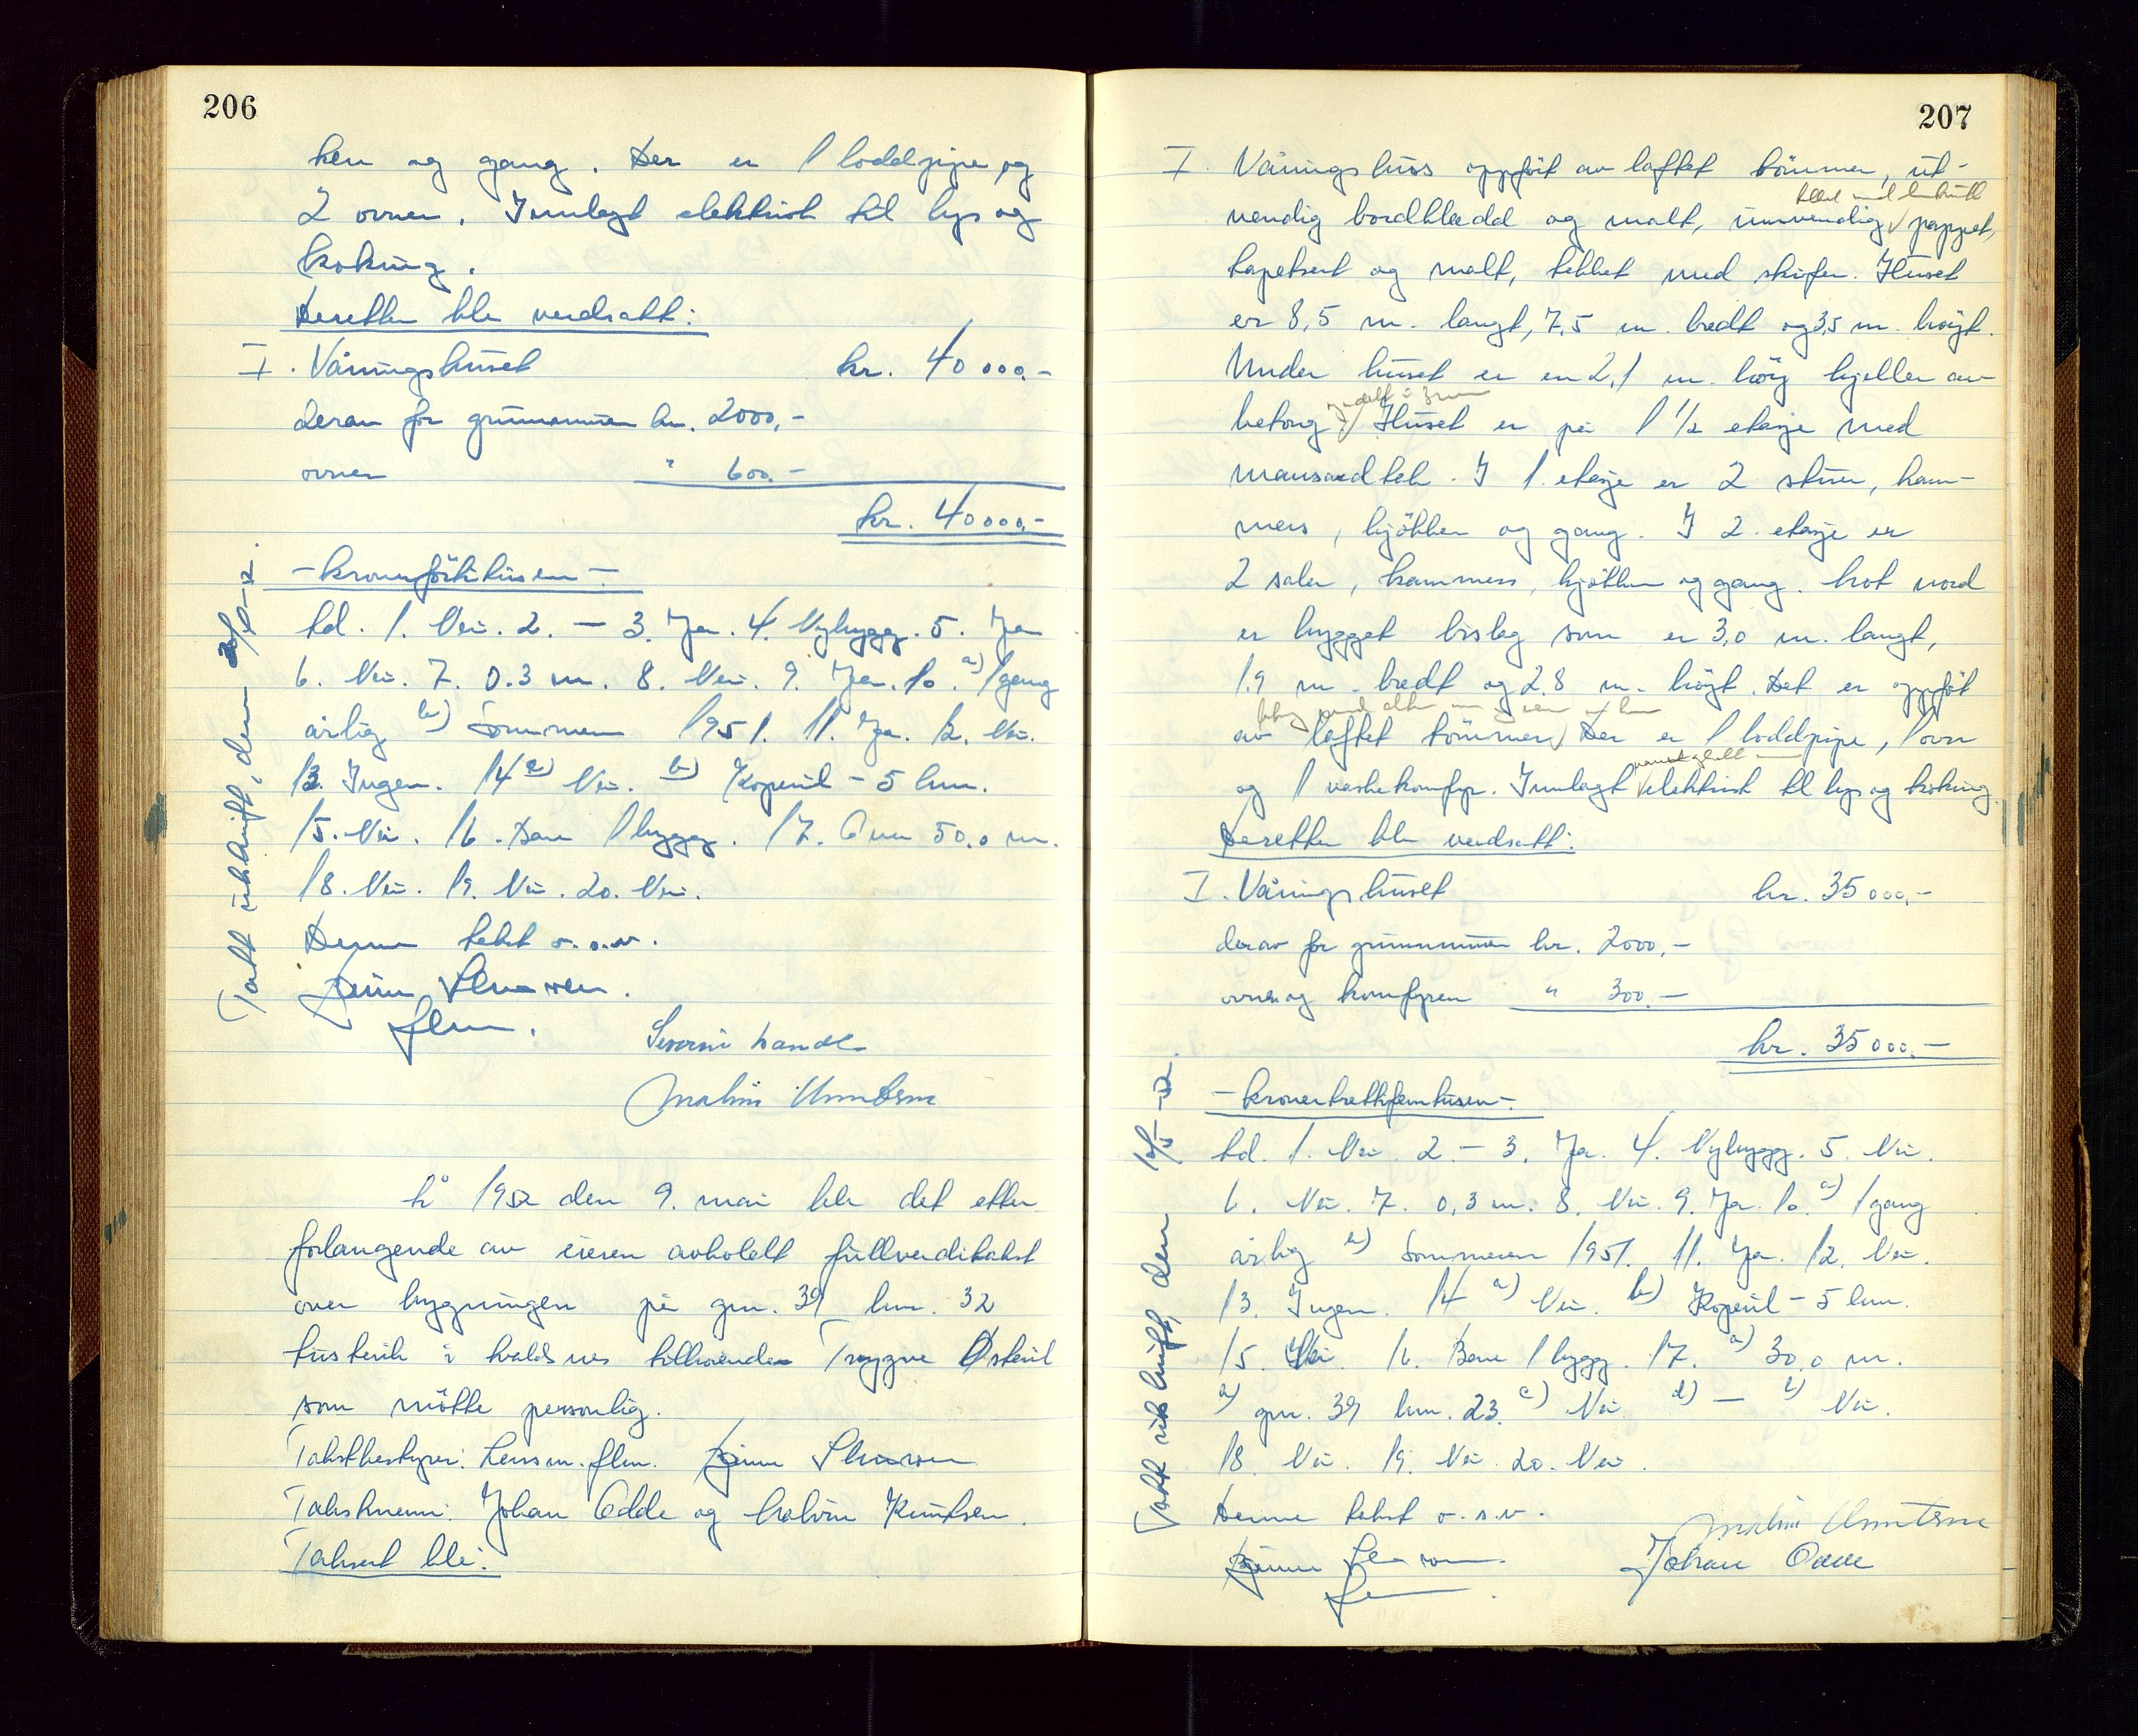 206
ken og gang. Der er 1 loddpipe og
2 ovner. Innlagt elektrisk til lys og
koking.
Deretter ble verdsatt:
I. Våningshuset kr. 40000,-
derav for grunnmuren kr. 2000,-
ovner " 600,-
kr. 40000,-
- kronerførtitusen -
hd. 1. Nei. 2. - 3. Ja. 4. Nybygg. 5. Ja
6. Nei. 7. 0.3 m. 8. Nei. 9. Ja. 10. a) 1 gang
årlig b) Sommeren 1951. 11. Ja. 12. Nei.
13. Ingen. 14 a) Nei. b) Kopervik - 5 km.
15. Nei. 16. Bare 1 bygg. 17. Over 50,0 m.
18. Nei. 19. Nei. 20. Nei.
Denne takst o.s.v.
Tatt utskrift, den
År 1952 den 9. mai ble det etter
forlangende av eieren avholdt fullverditakst
over bygningen på gnr. 39 bnr. 32
i tilhørende Trygve Østevik
som møtte personlig.
Takstbestyrer: Lensm. flm.
Takstmenn: Johan Odde og Malvin Knutsen.
Taksert ble:
207
I. Våningshus oppført av laftet tømmer, ut-
vendig bordkledd og malt, innvendig pappet,
tapetsert og malt, tekket med skifer. Huset
er 8,5 m. langt, 7,5 m. bredt og 3,5 m. høyt.
Under huset er en 2,1 m. høy kjeller av
betong og delt i 3 rum Huset er på 1 1/2 etasje med
mansardtak. I 1. etasje er 2 stuer, kam-
mers, kjøkken og gang. I 2. etasje er
2 saler, kammers, kjøkken og gang. Mot nord
er bygget bislag som er 3,0 m. langt,
1,9 m. bredt og 2,8 m. høyt. Det er oppført
av laftet tømmer. Der er 1 loddpipe, 1 ovn
og 1 vaskekomfyr. Innlagt elektrisk til lys og koking.
Deretter ble verdsatt:
I. Våningshuset kr. 35000,-
derav for grunnmuren kr. 2000,-
ovner og komfyren " 300,-
kr. 35000,-
- kronertrettifemtusen -
hd. 1. Nei. 2. - 3. Ja. 4. Nybygg. 5. Nei.
6. Nei. 7. 0,3 m. 8. Nei. 9. Ja. 10. a) 1 gang
årlig b) Sommeren 1951. 11. Ja. 12. Nei.
13. Ingen. 14 a) Nei. b) Kopervik - 5 km.
15. Nei. 16. Bare 1 bygg. 17. a) 30,0 m.
b) gnr. 39 bnr. 23. c) Nei. d) - e) Nei.
18. Nei. 19. Nei. 20. Nei.
Denne takst o.s.v.
Johan Odde
Tatt utskrift, den